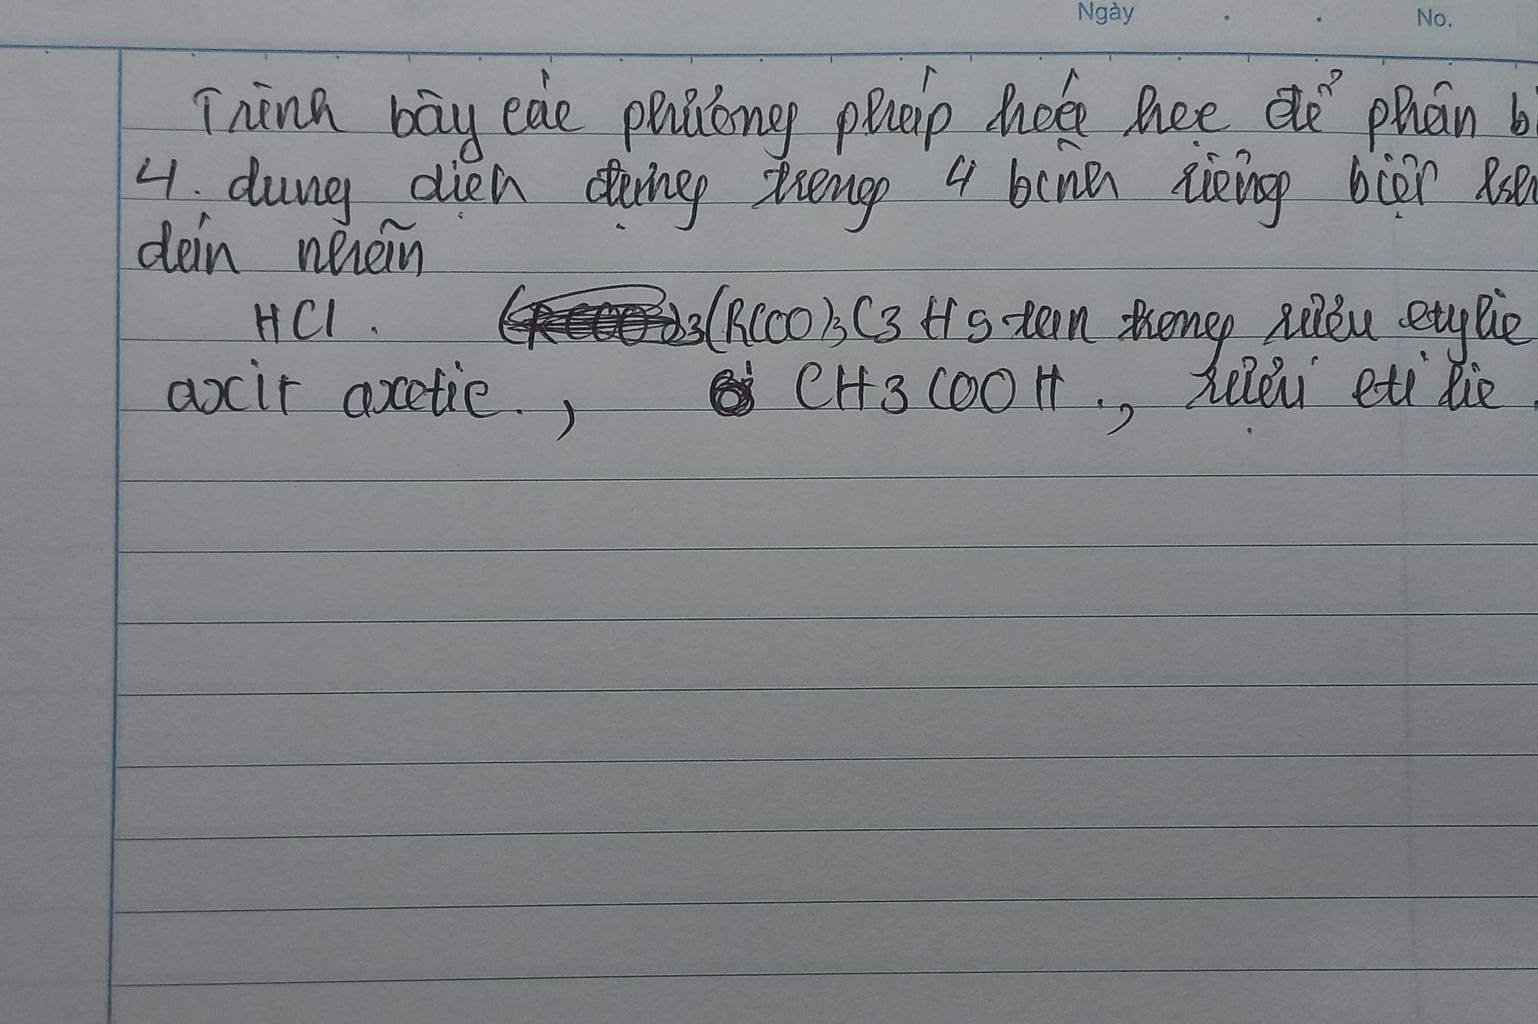 Ngày No.
Trình bày các phương pháp hoá học để phân
4. dung dịch đựng trong 4 bình riêng biệt
dán nhãn
HCl. (RCOO)3C3H5 tan trong rượu etylic
axit axetic., CH3COOH., rượu etilic.